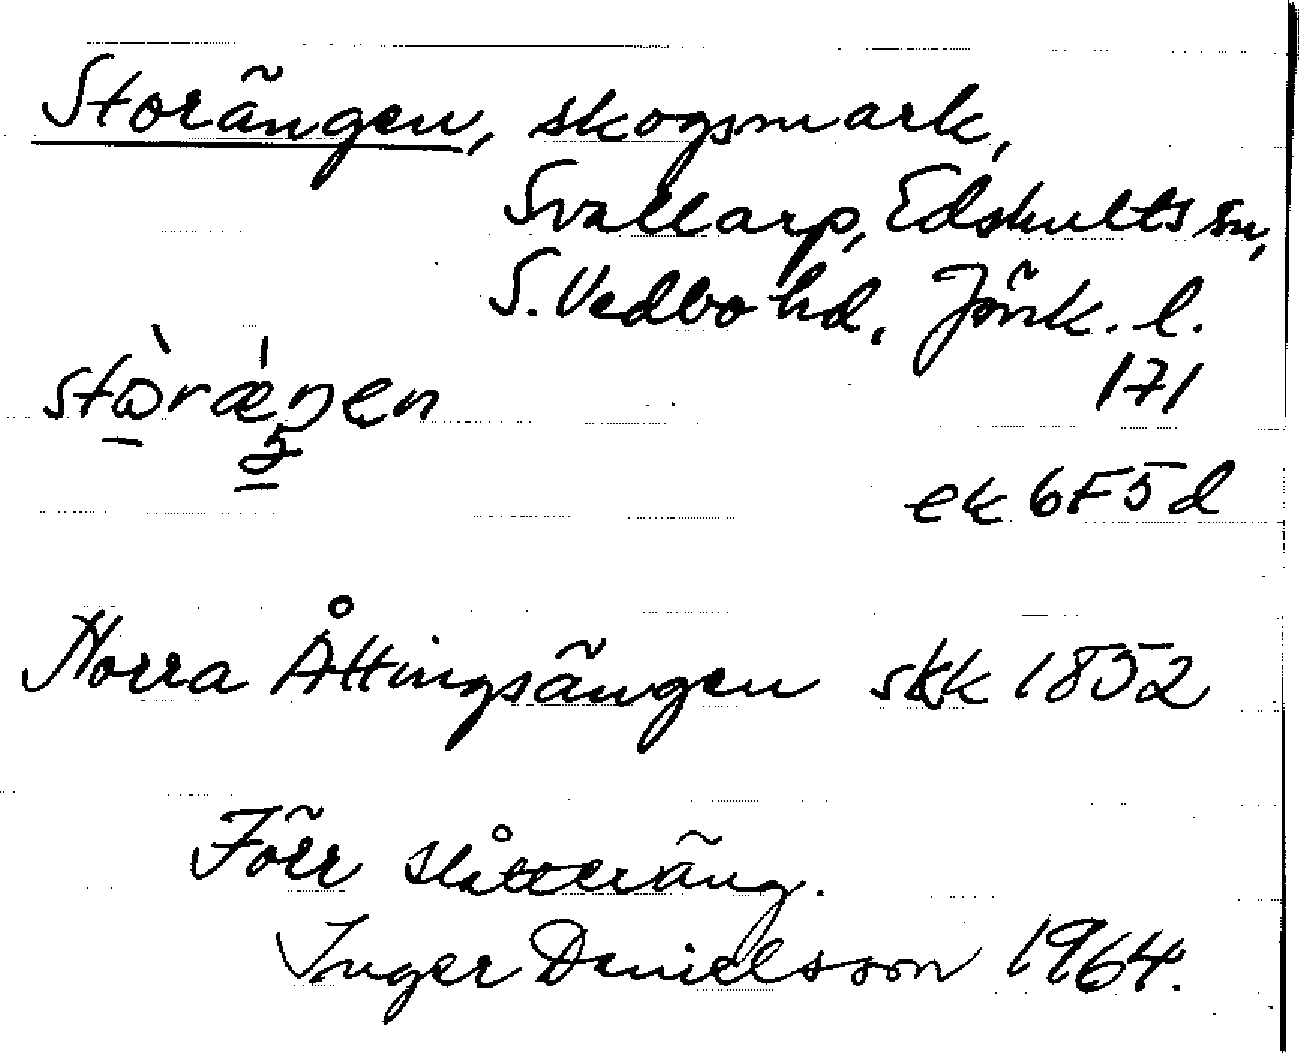 Storängen, skogsmark,
Svallarp, Edshults sn,
S. Vedbo hd, Jönk. l.
171
stòrǽŋen
ek 6F5d
Norra Åttingsängen skk 1852
Förr slåtteräng.
Inger Danielsson 1964.